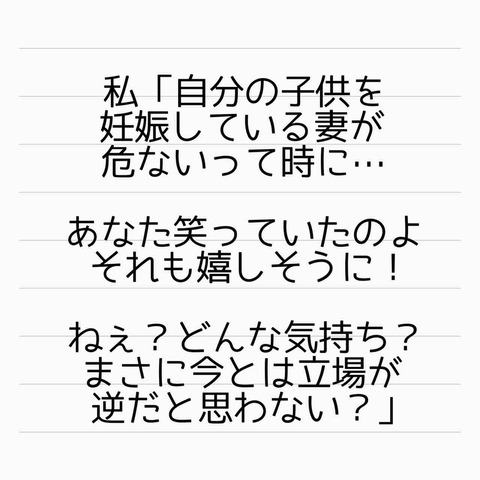 私「自分の子供を
妊娠している妻が
危ないって時に…
あなた笑っていたのよ
それも嬉しそうに！
ねぇ？どんな気持ち？
まさに今とは立場が
逆だと思わない？」